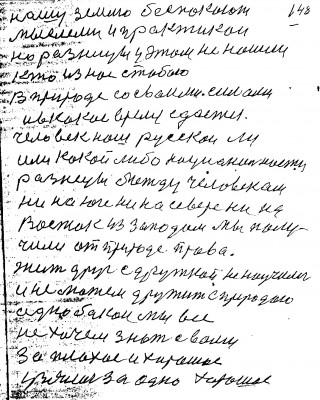 нашу землю беспокоют 148
мыслями и практикой
но разницы и этом не нашли
кто из нас стобою
В природе со своими силами
и в какое время сдается.
человек наш русской ли
или какой либо национальности
разницы между человекам
ни на юге ни на севере ни на
Восток из западом мы полу-
чили от природе права.
жить друг с дружкой не научились
и не можем дружить с природою
с одно бакой мы все
не хочем знать с вами
За плохое и харошое
за одно харошое